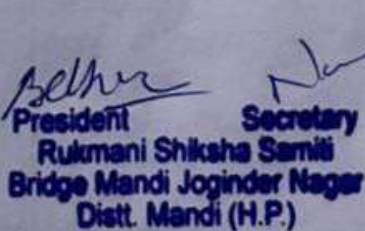 President Secretary
Rukmani Shiksha Samiti
Bridge Mandi Joginder Nagar
Distt. Mandi (H.P.)